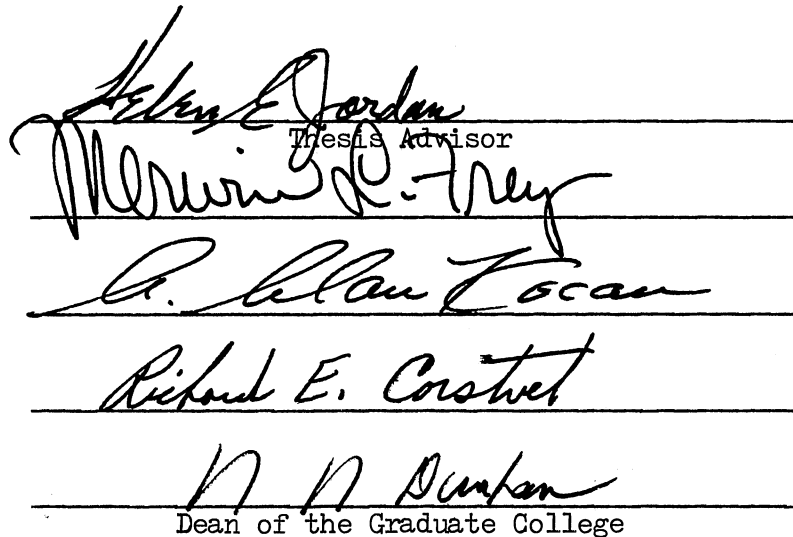 Helen E Jordan
Thesis Advisor
Merwin L. Frey
A. Alan Kocan
Richard E. Corstvet
N N Durham
Dean of the Graduate College